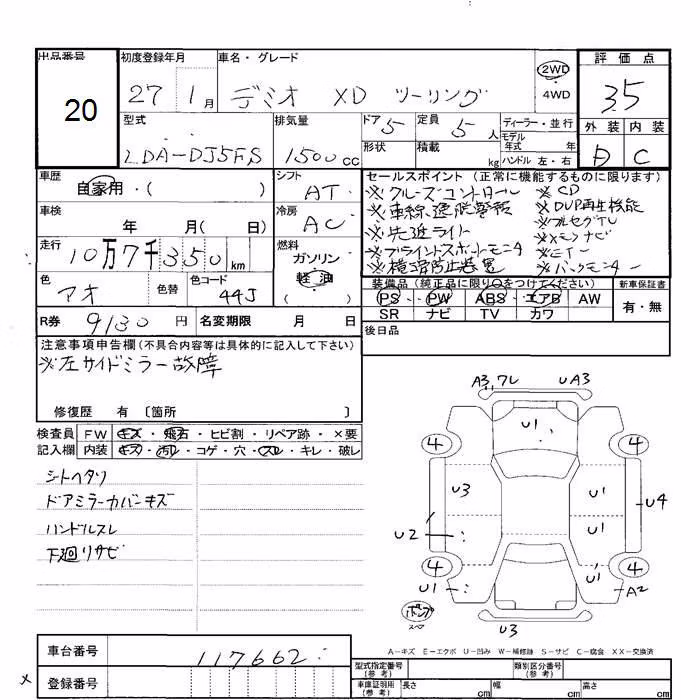 出品番号
20
初度登録年月
27 1月
車名・グレード
デミオ XD ツーリング
2WD
4WD
評価点
3.5
外装 内装
D C
型式
LDA-DJ5FS
排気量
1500cc
ドア 5
形状
定員 5人
積載 kg
ディーラー・並行
モデル年式 年
ハンドル 左・右
車歴
自家用・( )
シフト
AT
車検
年 月( 日)
冷房
AC
走行
10万7千350km
燃料
ガソリン
軽油
色
アオ
色替
色コード
44J
R券 9130円
名変期限 月 日
セールスポイント(正常に機能するものに限ります)
※クルーズコントロール ※CD
※車線逸脱警報 ※DVD再生機能
※先近ライト ※フルセグTV
※ブラインドスポットモニタ ※メモリナビ
※横滑防止装置 ※ETC
※バックモニター
装備品(純正品に限り○をつけてください)
PS・PW・ABS・エアB・AW
SR ナビ TV カワ
新車保証書
有・無
後日品
注意事項申告欄(不具合内容等は具体的に記入して下さい)
※左サイドミラー故障
修復歴 有〔箇所 〕
検査員記入欄
FW キズ・飛石・ヒビ割・リペア跡・×要
内装 キズ・汚れ・コゲ・穴・スレ・キレ・破レ
シートヘタリ
ドアミラーカバーキズ
ハンドルスレ
下廻リサビ
A3,ワレ UA3
U1
4 4
U3 U1 U4
U2 U1
4 4
U1 U1 A2
U3
A-キズ E-エクボ U-凹み W-補修跡 S-サビ C-腐食 XX-交換済
車台番号
117662
登録番号
型式指定番号(参考)
類別区分番号(参考)
車庫証明用(参考)
長さ cm 幅 cm 高さ cm